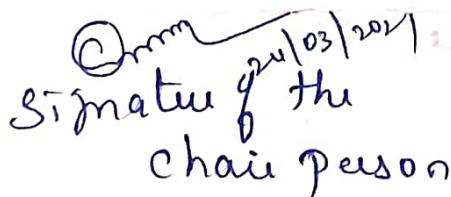 24/03/2021
Signature of the
chair person